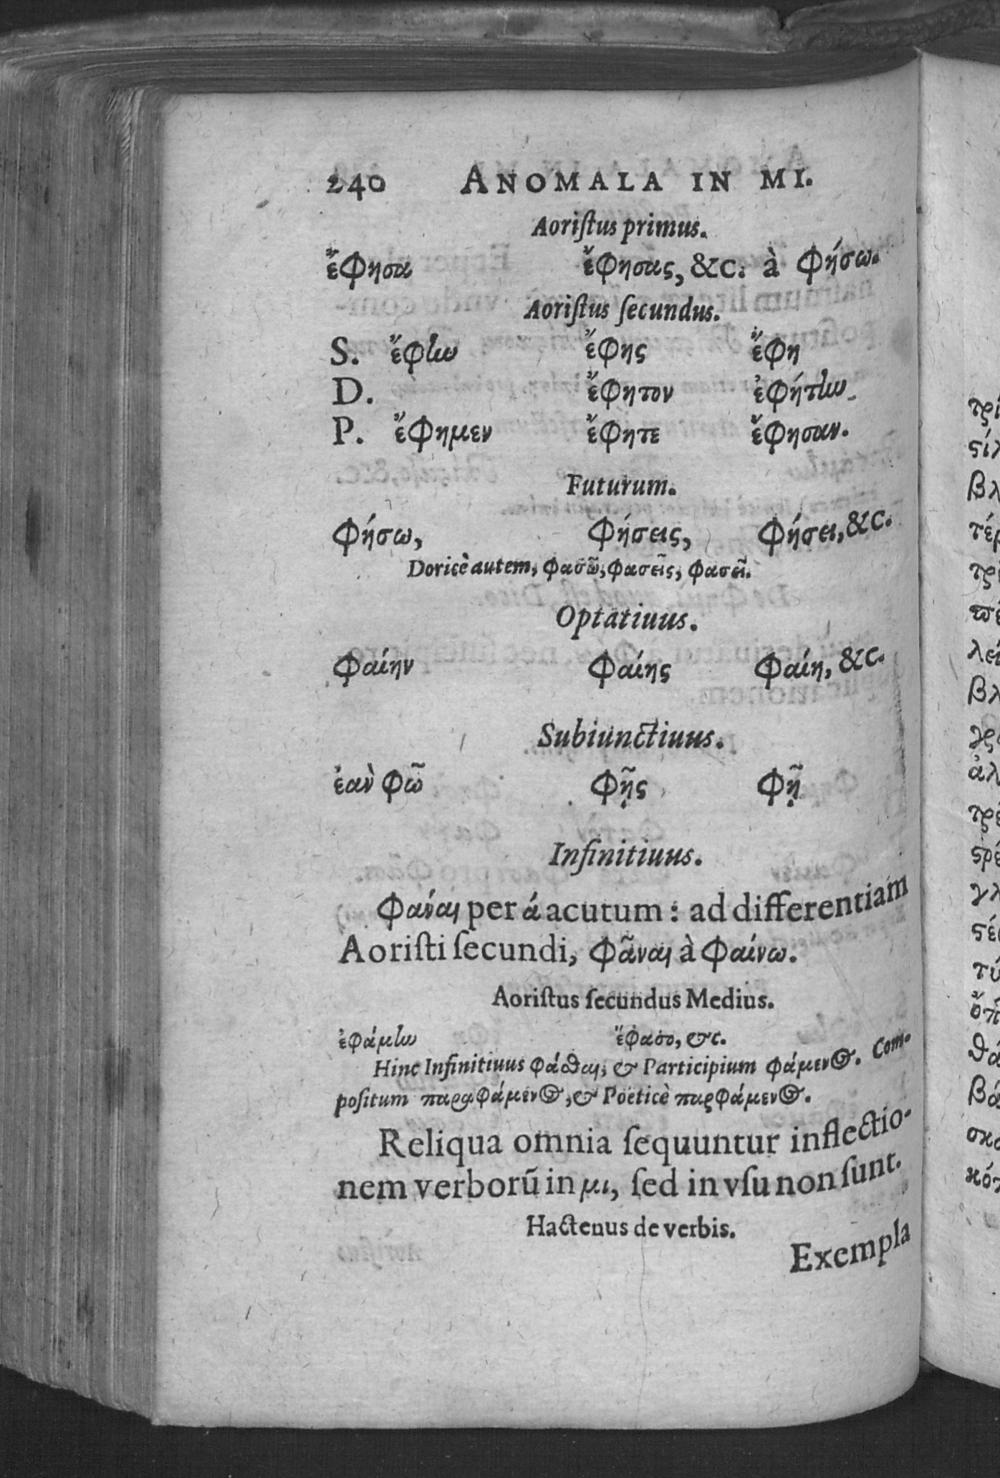 240 ANOMALA IN MI.
Aoriſtus primus.
ἔφησα ἔφησας, &c. à φήσω.
Aoriſtus ſecundus.
S. ἔφην ἔφης ἔφη
D. ἔφητον ἐφήτην
P. ἔφημεν ἔφητε ἔφησαν.
Futurum.
φήσω, φήσεις, φήσει, &c.
Doricè autem, φασῶ, φασεῖς, φασεῖ.
Optatiuus.
φαίην φαίης φαίη, &c.
Subiunctiuus.
ἐὰν φῶ φῇς φῇ
Infinitiuus.
φάναι per ά acutum: ad differentiam
Aoriſti ſecundi, φᾶναι à φαίνω.
Aoriſtus ſecundus Medius.
ἐφάμην ἔφασο, &c.
Hinc Infinitiuus φάσθαι, & Participium φάμενος. Com-
poſitum παραφάμενος, & Poëticè παρφάμενος.
Reliqua omnia ſequuntur inflectio-
nem verborũ in μι, ſed in vſu non ſunt.
Hactenus de verbis.
Exempla